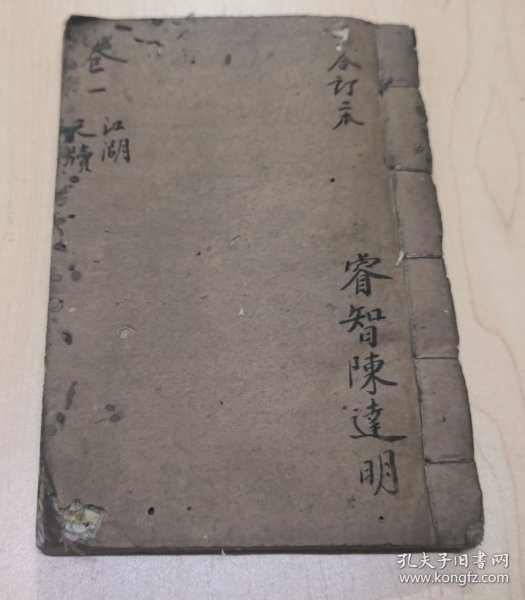 合订二本
睿智陳達明
卷一
江湖
尺牘
孔夫子旧书网
www.kongfz.com